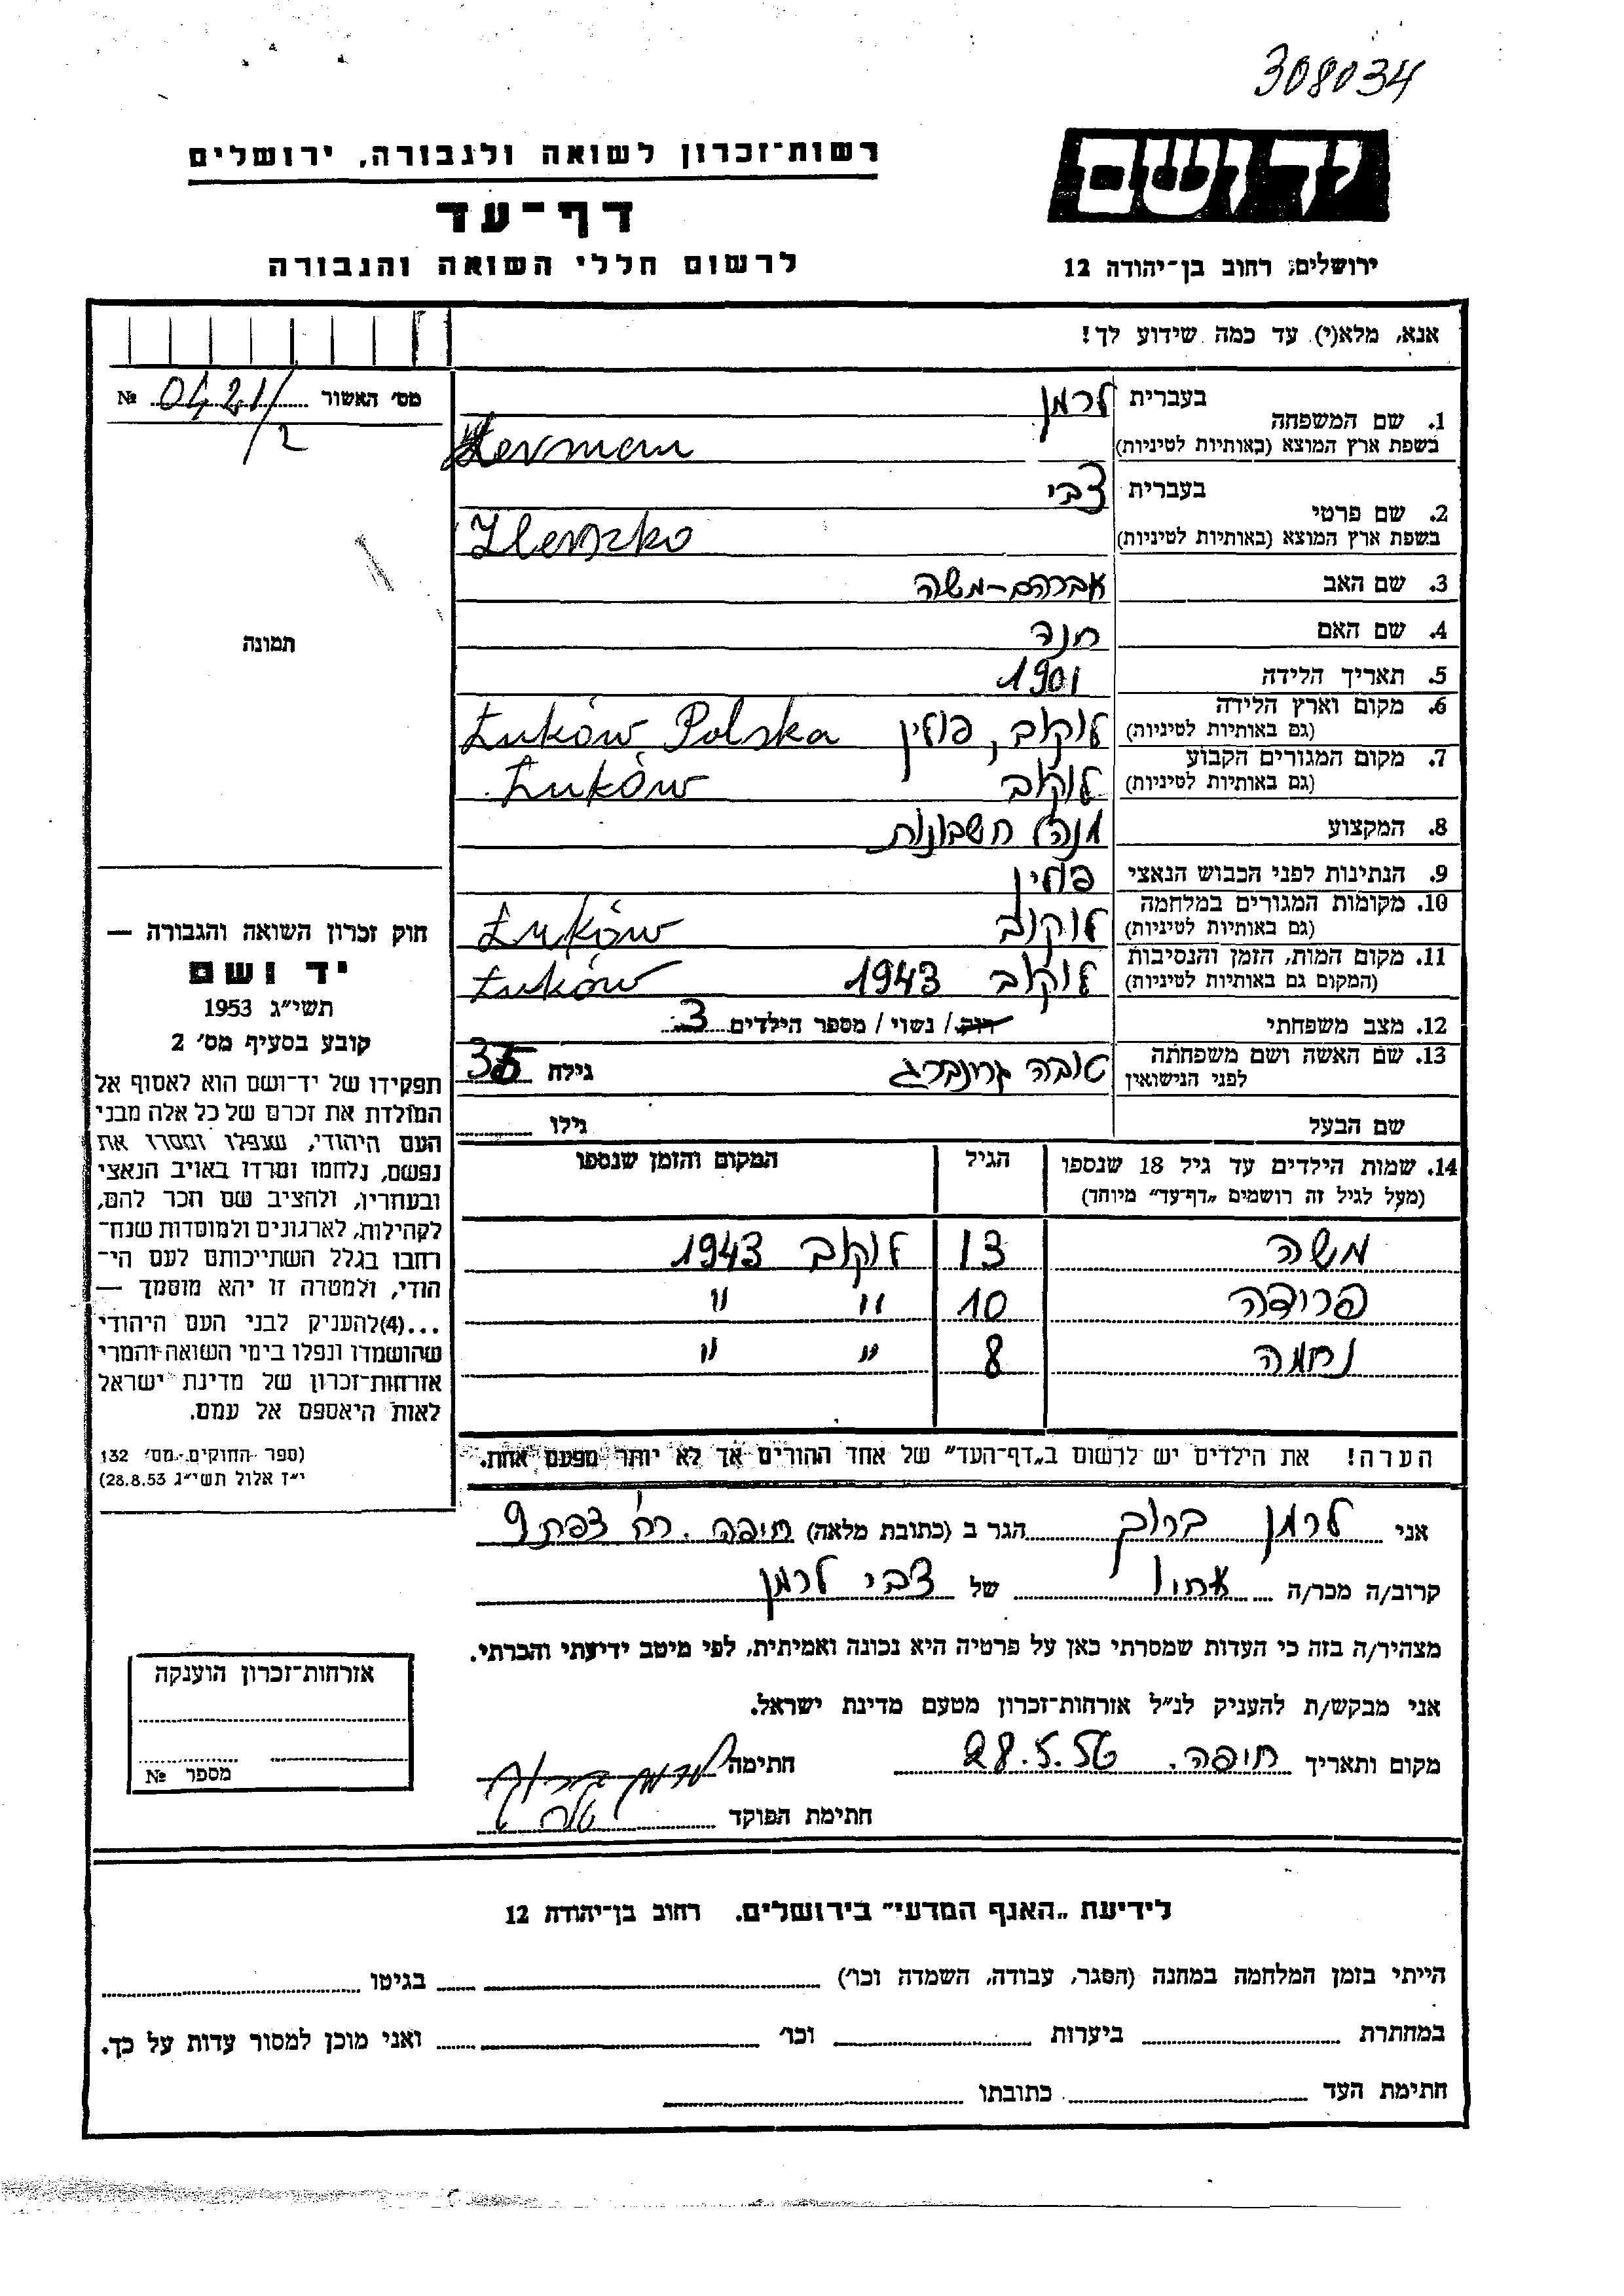 308034
יד ושם
רשות־זכרון לשואה ולגבורה, ירושלים
דף־עד
ירושלים, רחוב בן־יהודה 12
לרשום חללי השואה והגבורה
אנא, מלא(י) עד כמה שידוע לך!
מס׳ האשור 0421/2 №
תמונה
1. שם המשפחה
בעברית לרמן
בשפת ארץ המוצא (באותיות לטיניות) Lerman
2. שם פרטי
בעברית צבי
בשפת ארץ המוצא (באותיות לטיניות) Herszko
3. שם האב אברהם-משה
4. שם האם חנה
5. תאריך הלידה 1901
6. מקום וארץ הלידה
(גם באותיות לטיניות) לוקוב, פולין Łuków Polska
7. מקום המגורים הקבוע
(גם באותיות לטיניות) לוקוב Łuków
8. המקצוע מנהל חשבונות
9. הנתינות לפני הכבוש הנאצי פולין
10. מקומות המגורים במלחמה
(גם באותיות לטיניות) לוקוב Łuków
11. מקום המות, הזמן והנסיבות
(המקום גם באותיות לטיניות) לוקוב 1943 Łuków
12. מצב משפחתי רווק / נשוי / מספר הילדים 3
13. שם האשה ושם משפחתה
לפני הנישואין טובה גרינברג גילה 35
שם הבעל גילו
14. שמות הילדים עד גיל 18 שנספו הגיל המקום והזמן שנספו
(מעל לגיל זה רושמים „דף־עד״ מיוחד)
משה 13 לוקוב 1943
פרידה 10 " "
נחמה 8 " "
הערה! את הילדים יש לרשום ב„דף־העד״ של אחד ההורים אך לא יותר מפעם אחת.
חוק זכרון השואה והגבורה —
יד ושם
תשי״ג 1953
קובע בסעיף מס׳ 2
תפקידו של יד־ושם הוא לאסוף אל
המולדת את זכרם של כל אלה מבני
העם היהודי, שנפלו ומסרו את
נפשם, נלחמו ומרדו באויב הנאצי
ובעוזריו, ולהציב שם וזכר להם,
לקהילות, לארגונים ולמוסדות שנח־
רבו בגלל השתייכותם לעם הי־
הודי, ולמטרה זו יהא מוסמך —
...(4) להעניק לבני העם היהודי
שהושמדו ונפלו בימי השואה והמרי
אזרחות־זכרון של מדינת ישראל
לאות היאספם אל עמם.
(ספר החוקים מס׳ 132
י״ז אלול תשי״ג 28.8.53)
אני לרמן ברוך הגר ב (כתובת מלאה) חיפה. רח׳ צפת 9
קרוב/ה מכר/ה אחיו של צבי לרמן
מצהיר/ה בזה כי העדות שמסרתי כאן על פרטיה היא נכונה ואמיתית, לפי מיטב ידיעתי והכרתי.
אני מבקש/ת להעניק לנ״ל אזרחות־זכרון מטעם מדינת ישראל.
מקום ותאריך חיפה. 28.5.56 חתימה לרמן ברוך
חתימת הפוקד
אזרחות־זכרון הוענקה
מספר №
לידיעת „האגף המדעי״ בירושלים. רחוב בן־יהודה 12
הייתי בזמן המלחמה במחנה (הסגר, עבודה, השמדה וכו׳) בגיטו
במחתרת ביערות וכו׳ ואני מוכן למסור עדות על כך.
חתימת העד כתובתו